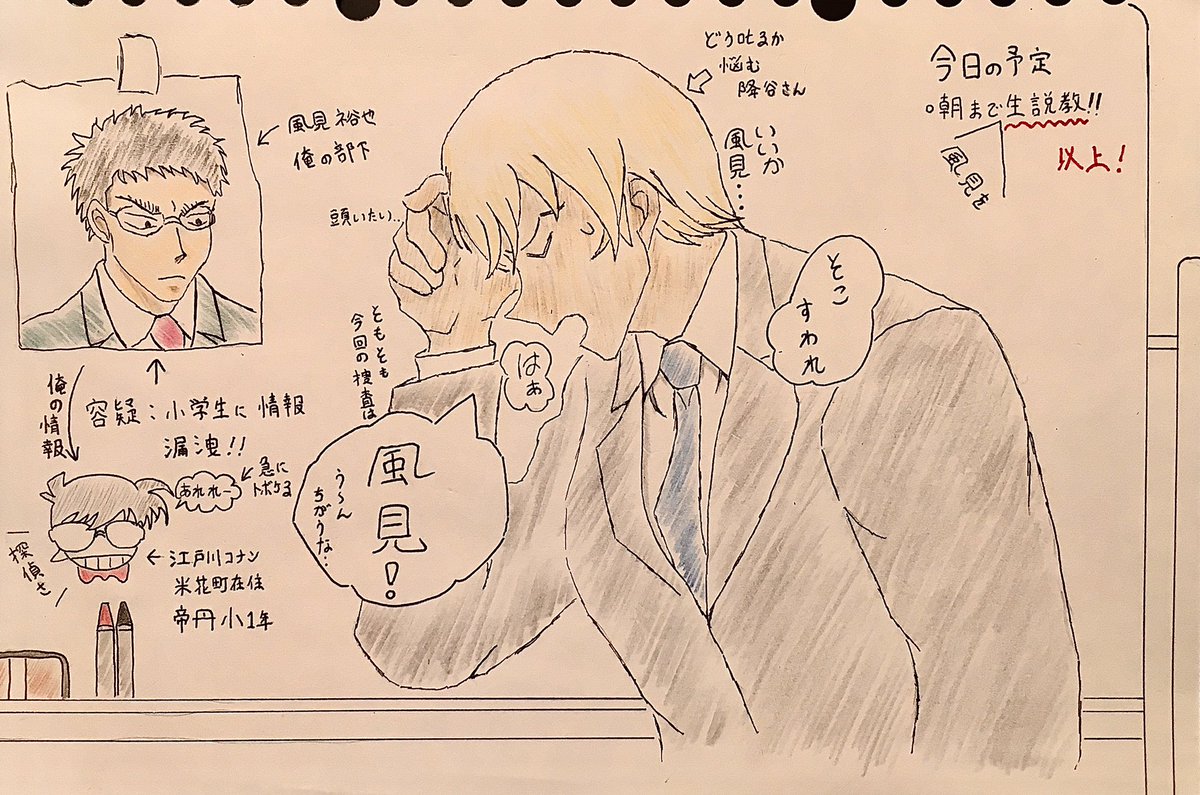 今日の予定
○朝まで生説教!!
風見を
以上!
どう吐るか
悩む
降谷さん
いいか
風見…
そこ
すわれ
風見裕也
俺の部下
頭いたい…
そもそも
今回の捜査は
はぁ
風見!
う〜ん
ちがうな…
容疑:小学生に情報
漏洩!!
俺の情報
あれれー
急に
トボケる
江戸川コナン
米花町在住
帝丹小1年
探偵さ